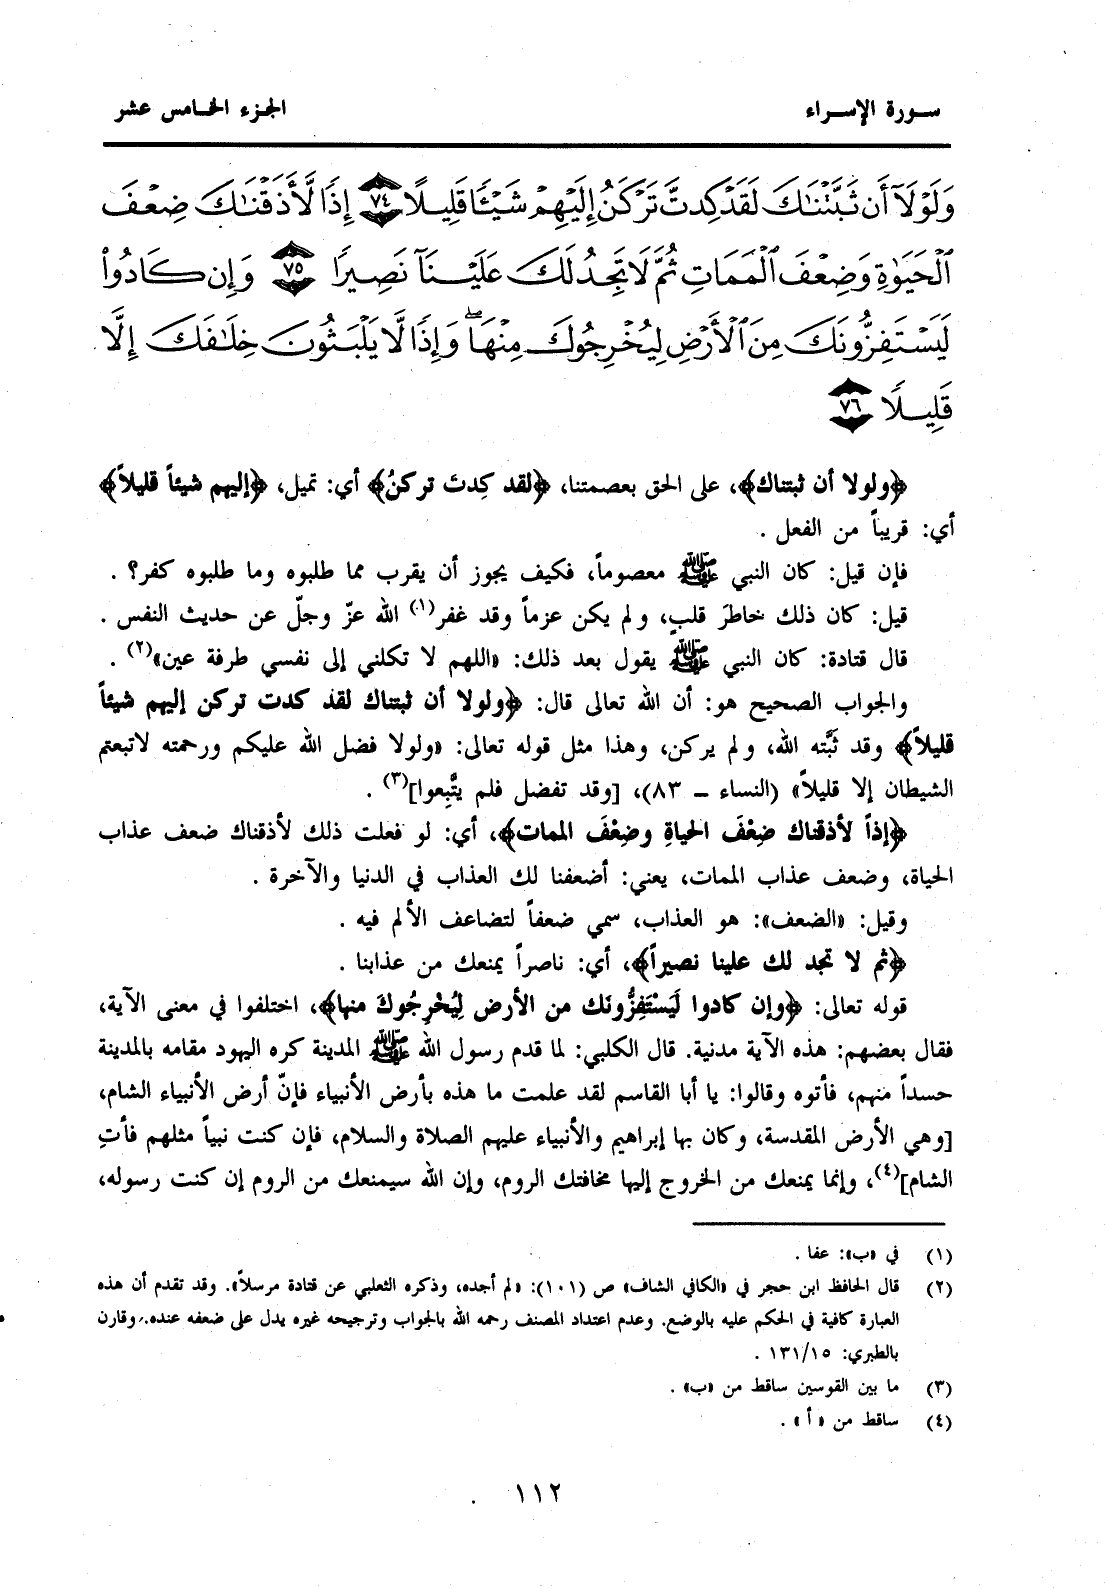 سورة الإسراء
الجزء الخامس عشر
وَلَوْلَآ أَن ثَبَّتْنَٰكَ لَقَدْ كِدتَّ تَرْكَنُ إِلَيْهِمْ شَيْـًٔا قَلِيلًا ٧٤ إِذًا لَّأَذَقْنَٰكَ ضِعْفَ
ٱلْحَيَوٰةِ وَضِعْفَ ٱلْمَمَاتِ ثُمَّ لَا تَجِدُ لَكَ عَلَيْنَا نَصِيرًا ٧٥ وَإِن كَادُوا۟
لَيَسْتَفِزُّونَكَ مِنَ ٱلْأَرْضِ لِيُخْرِجُوكَ مِنْهَا ۖ وَإِذًا لَّا يَلْبَثُونَ خِلَٰفَكَ إِلَّا
قَلِيلًا ٧٦
﴿ولولا أن ثبتناك﴾، على الحق بعصمتنا، ﴿لقد كِدتَ تركنُ﴾ أي: تميل، ﴿إليهم شيئاً قليلاً﴾
أي: قريباً من الفعل .
فإن قيل: كان النبي ﷺ معصوماً، فكيف يجوز أن يقرب مما طلبوه وما طلبوه كفر؟ .
قيل: كان ذلك خاطرَ قلبٍ، ولم يكن عزماً وقد غفر(١) الله عزّ وجلّ عن حديث النفس .
قال قتادة: كان النبي ﷺ يقول بعد ذلك: «اللهم لا تكلني إلى نفسي طرفة عين»(٢) .
والجواب الصحيح هو: أن الله تعالى قال: ﴿ولولا أن ثبتناك لقد كدت تركن إليهم شيئاً
قليلاً﴾ وقد ثَبَّته الله، ولم يركن، وهذا مثل قوله تعالى: «ولولا فضل الله عليكم ورحمته لاتبعتم
الشيطان إلا قليلاً» (النساء – ٨٣)، [وقد تفضل فلم يتَّبِعوا](٣) .
﴿إذاً لأذقناك ضِعْفَ الحياةِ وضِعْفَ الممات﴾، أي: لو فعلت ذلك لأذقناك ضعف عذاب
الحياة، وضعف عذاب الممات، يعني: أضعفنا لك العذاب في الدنيا والآخرة .
وقيل: «الضعف»: هو العذاب، سمي ضعفاً لتضاعف الألم فيه .
﴿ثم لا تجد لك علينا نصيراً﴾، أي: ناصراً يمنعك من عذابنا .
قوله تعالى: ﴿وإن كادوا لَيَسْتَفِزُّونَك من الأرض لِيُخْرِجُوكَ منها﴾، اختلفوا في معنى الآية،
فقال بعضهم: هذه الآية مدنية. قال الكلبي: لما قدم رسول الله ﷺ المدينة كره اليهود مقامه بالمدينة
حسداً منهم، فأتوه وقالوا: يا أبا القاسم لقد علمت ما هذه بأرض الأنبياء فإنّ أرض الأنبياء الشام،
[وهي الأرض المقدسة، وكان بها إبراهيم والأنبياء عليهم الصلاة والسلام، فإن كنت نبياً مثلهم فأتِ
الشام](٤)، وإنما يمنعك من الخروج إليها مخافتك الروم، وإن الله سيمنعك من الروم إن كنت رسوله،
(١) في «ب»: عفا .
(٢) قال الحافظ ابن حجر في «الكافي الشاف» ص (١٠١): «لم أجده، وذكره الثعلبي عن قتادة مرسلاً». وقد تقدم أن هذه
العبارة كافية في الحكم عليه بالوضع. وعدم اعتداد المصنف رحمه الله بالجواب وترجيحه غيره يدل على ضعفه عنده. وقارن
بالطبري: ١٣١/١٥ .
(٣) ما بين القوسين ساقط من «ب» .
(٤) ساقط من « أ » .
١١٢